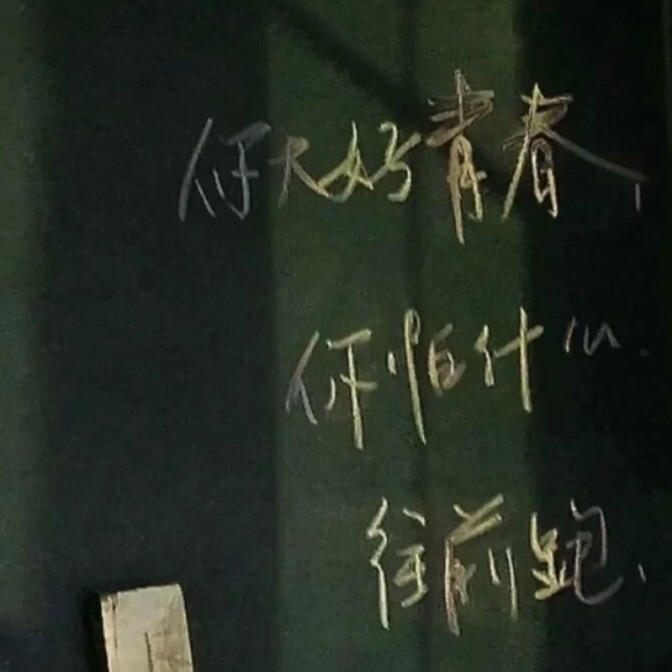 你大好青春，
你怕什么
往前跑，